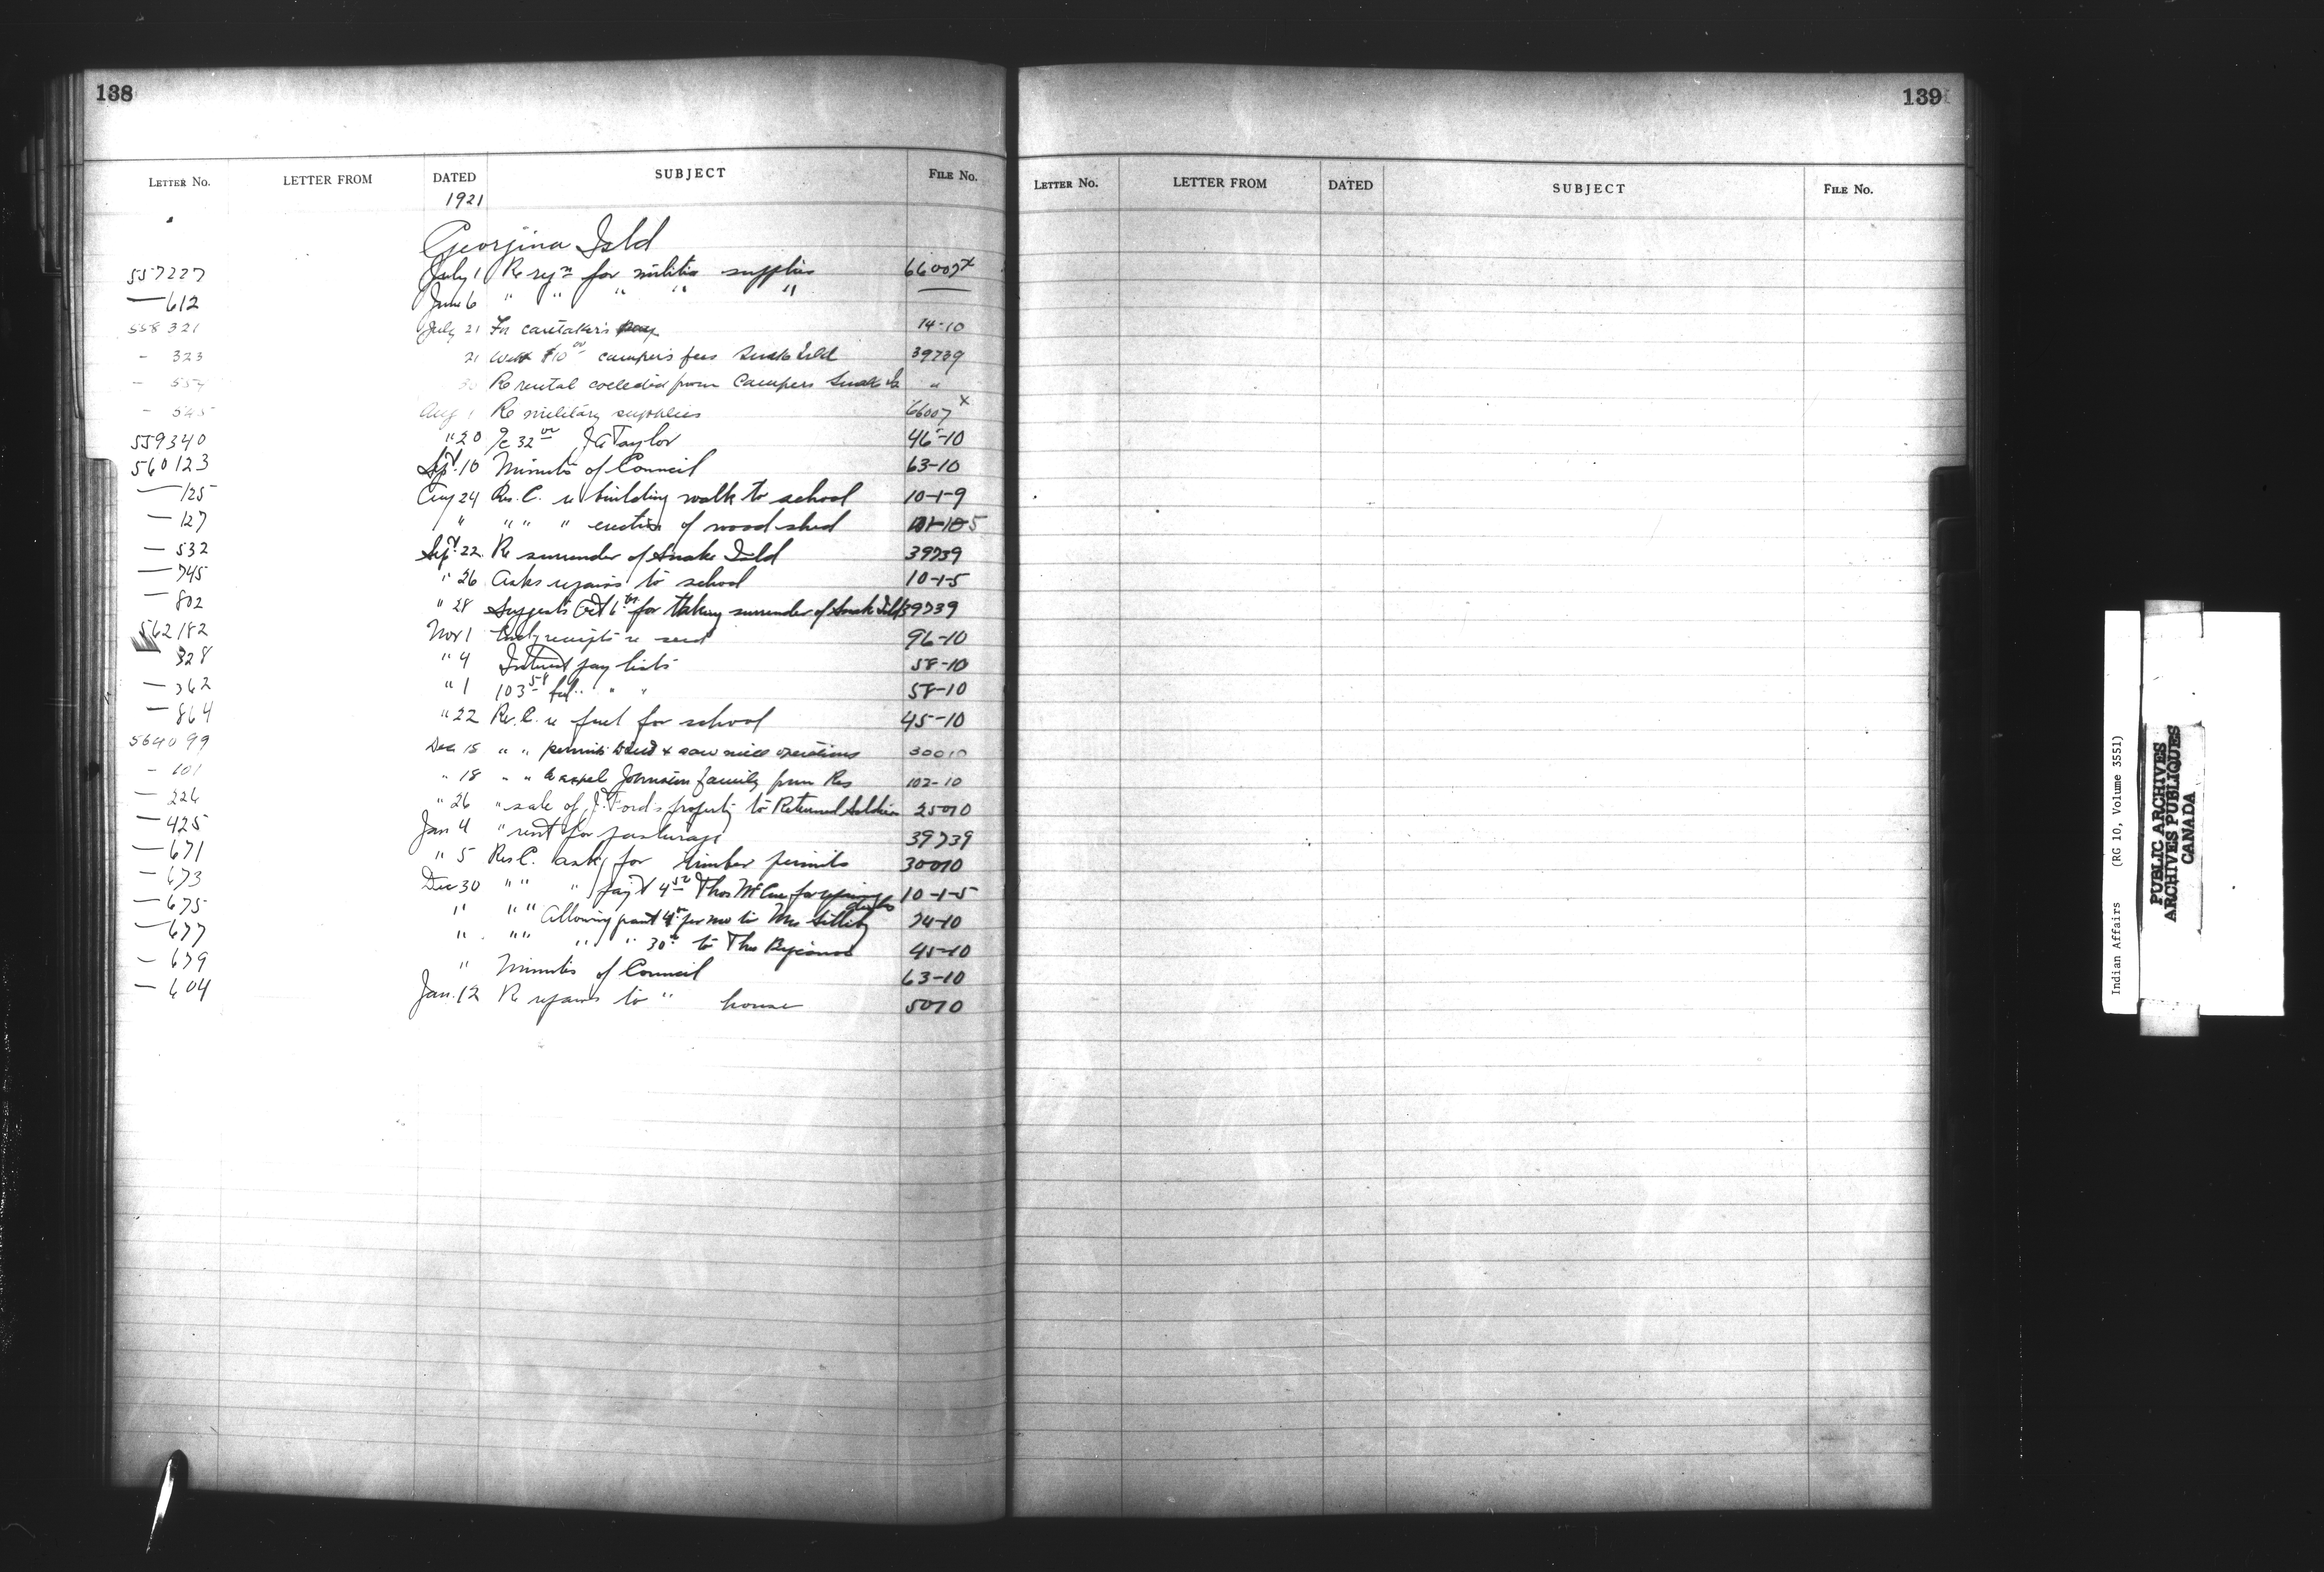 138
LETTER NO. LETTER FROM DATED SUBJECT FILE NO.
1921
Georgina Isld
557227 July 1 Re for militia supplies 66007x
— 612 June 6 " " " " " —
558321 July 21 For caretaker's pay 14-10
- 323 21 $10 00 camper's fees Snake Isld 39739
- Re rental collected from Campers Snake Is "
- 545 Aug 1 Re military supplies 66007x
559340 " 20 a/c 32 00 J A Taylor 46-10
560123 Sept. 10 Minutes of Council 63-10
— 125 Aug 24 Res. C. re building walk to school 10-1-9
— 127 " " " " erection of wood shed
— 532 Sept. 22 Re surrender of Snake Isld 39739
— 745 " 26 Asks repairs to school 10-1-5
— 802 " 28 Suggests Oct for taking surrender of Snake Isld 39739
562182 Nov 1 receipts re seed 96-10
328 " 4 Interest pay lists 58-10
— 362 " 1 103 58 " " 58-10
— 864 " 22 Res. C. re fuel for school 45-10
564099 Dec 15 " " permit & saw mill operations 30010
- 101 " 18 " " to expel Johnston family from Res 102-10
— 226 " 26 " sale of J. Ford's property to Returned Soldier 25010
— 425 Jan 4 " rent for pasturage 39739
— 671 " 5 Res C. asks for timber permits 30010
— 673 Dec 30 " " " pay't 4 50 Thos McCue for repairing desks 10-1-5
— 675 " " " Allowing grant 4 00 per mo to Mrs 74-10
— 677 " " " " " 30 00 to Thos 45-10
— 679 " Minutes of Council 63-10
— 604 Jan. 12 Re repairs to " house 5010
139
LETTER NO. LETTER FROM DATED SUBJECT FILE NO.
Indian Affairs (RG 10, Volume 3551)
PUBLIC ARCHIVES
ARCHIVES PUBLIQUES
CANADA